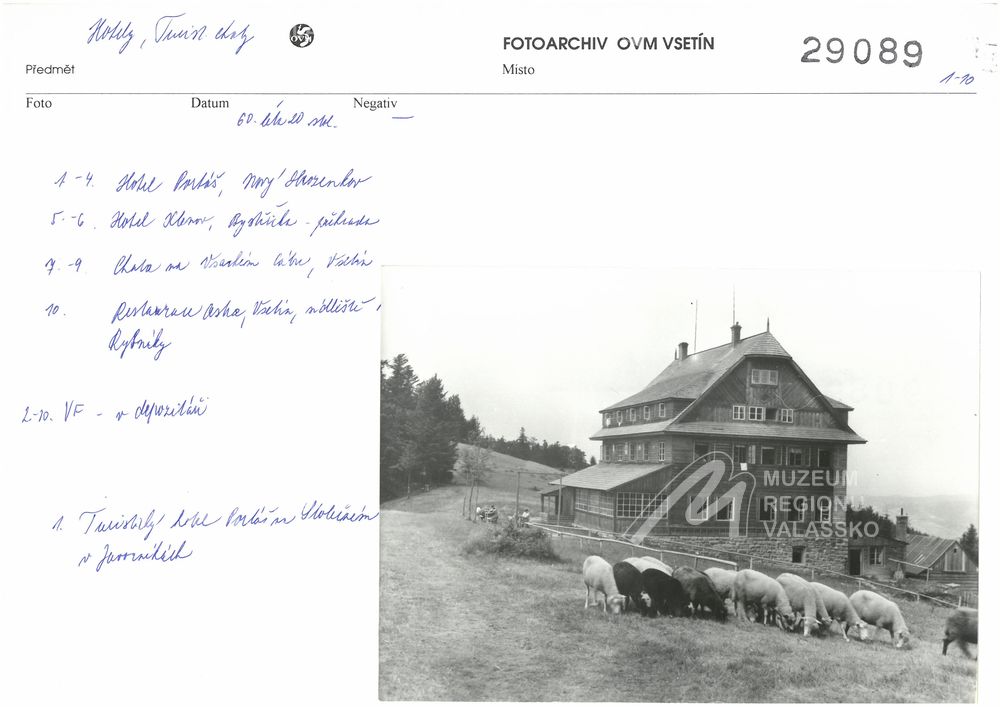 Hotely, Turist chaty
FOTOARCHIV OVM VSETÍN
29089
Předmět
Místo
1-10
Foto
Datum
Negativ
60. léta 20 stol.
—
1-4. Hotel Portáš, Nový Hrozenkov
5.-6. Hotel Klenov, Bystřička - přehrada
7.-9. Chata na Vsackém Cábu, Vsetín
10. Restaurace, Vsetín, sídliště
Rybníky
2-10. VF - v depozitáři
1. Turistický hotel Portáš na
v Javorníkách
MUZEUM
REGIONU
VALAŠSKO